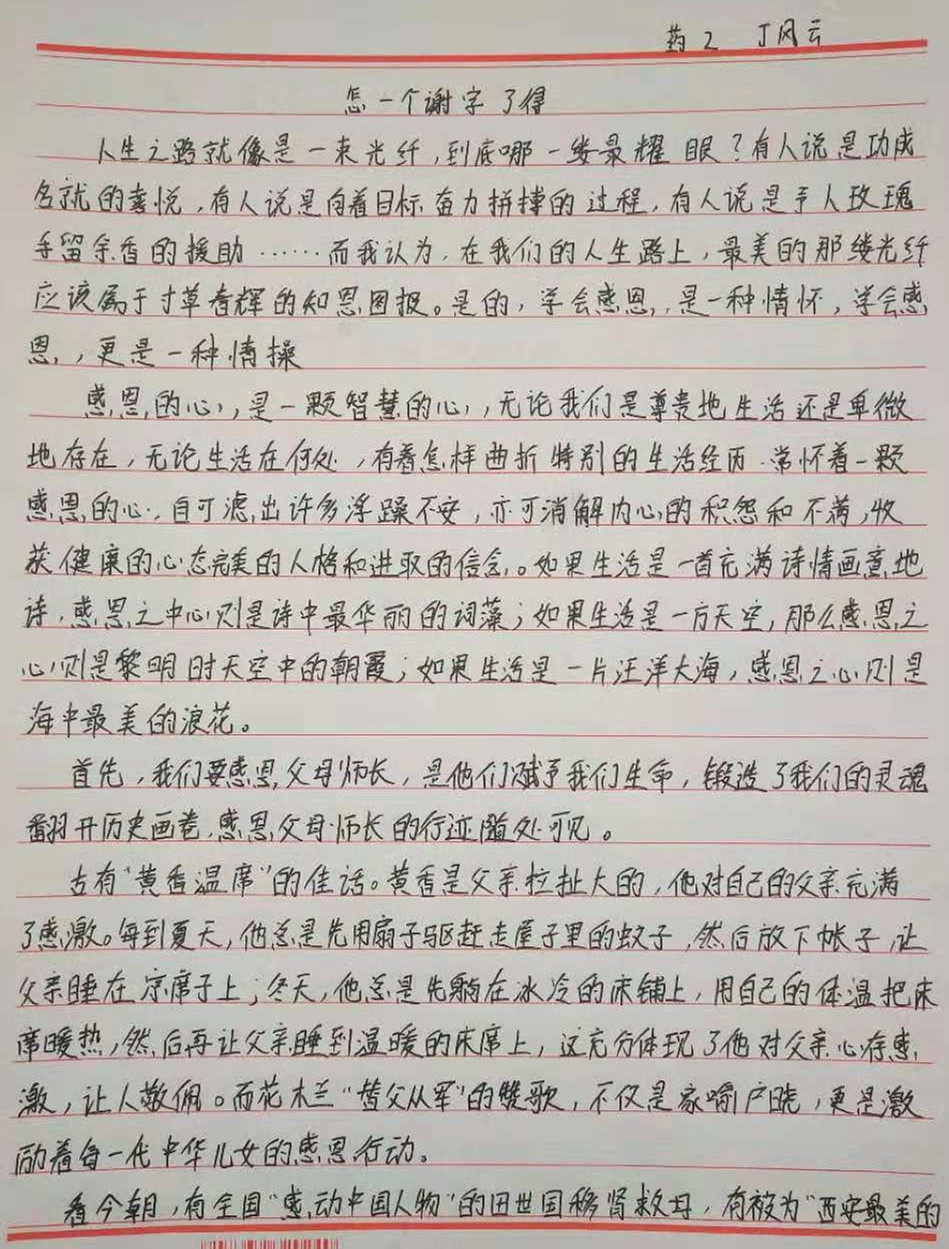 药2 丁风云
怎一个谢字了得
人生之路就像是一束光纤,到底哪一缕最耀眼?有人说是功成
名就的喜悦,有人说是向着目标奋力拼搏的过程,有人说是予人玫瑰
手留余香的援助……而我认为,在我们的人生路上,最美的那缕光纤
应该属于寸草春辉的知恩图报。是的,学会感恩,是一种情怀,学会感
恩,更是一种情操
感恩的心,是一颗智慧的心,无论我们是尊贵地生活还是卑微
地存在,无论生活在何处,有着怎样曲折特别的生活经历.常怀着一颗
感恩的心.自可滤出许多浮躁不安,亦可消解内心的积怨和不满,收
获健康的心态完美的人格和进取的信念。如果生活是一首充满诗情画意地
诗,感恩之中心则是诗中最华丽的词藻;如果生活是一方天空,那么感恩之
心则是黎明时天空中的朝霞;如果生活是一片汪洋大海,感恩之心则是
海中最美的浪花。
首先,我们要感恩父母师长,是他们赋予我们生命,锻造了我们的灵魂
翻开历史画卷,感恩父母师长的行迹随处可见。
古有“黄香温席”的佳话。黄香是父亲拉扯大的,他对自己的父亲充满
了感激。每到夏天,他总是先用扇子驱赶走屋子里的蚊子,然后放下帐子,让
父亲睡在凉席子上;冬天,他总是先躺在冰冷的床铺上,用自己的体温把床
席暖热,然后再让父亲睡到温暖的床席上,这充分体现了他对父亲心存感
激,让人敬佩。而花木兰“替父从军”的赞歌,不仅是家喻户晓,更是激
励着每一代中华儿女的感恩行动。
看今朝,有全国“感动中国人物”的田世国移肾救母,有被为“西安最美的